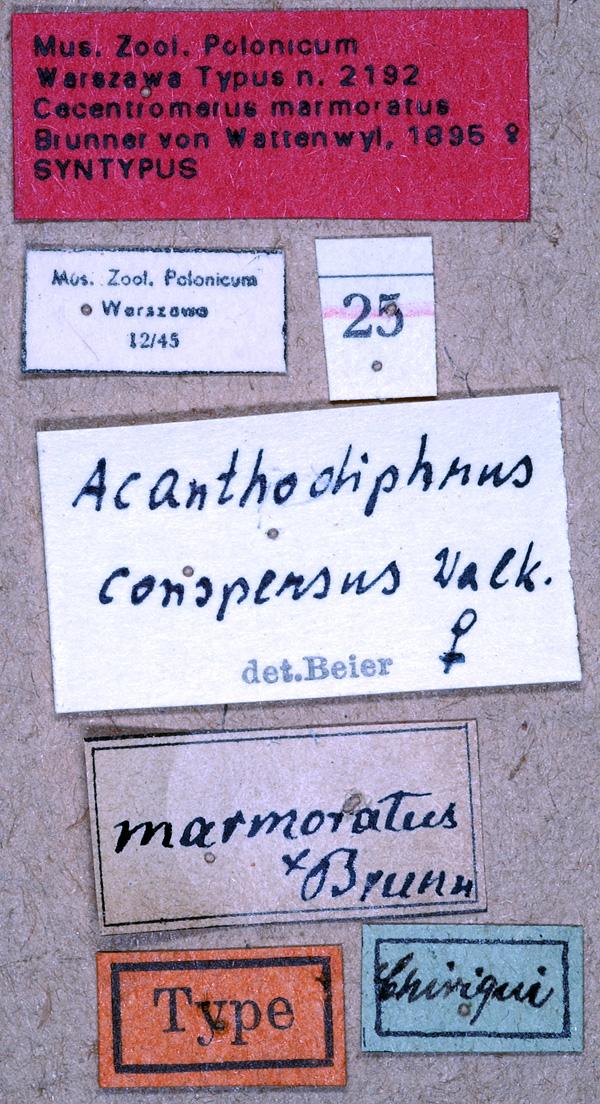 Mus. Zool. Polonicum
Warszawa Typus n. 2192
Cecentromerus marmoratus
Brunner von Wattenwyl, 1895 ♀
SYNTYPUS
Mus. Zool. Polonicum
Warszawa
12/45
25
Acanthodiphrus
conspersus Walk.
♀
det. Beier
marmoratus
× Brunn
Type
Chiriqui